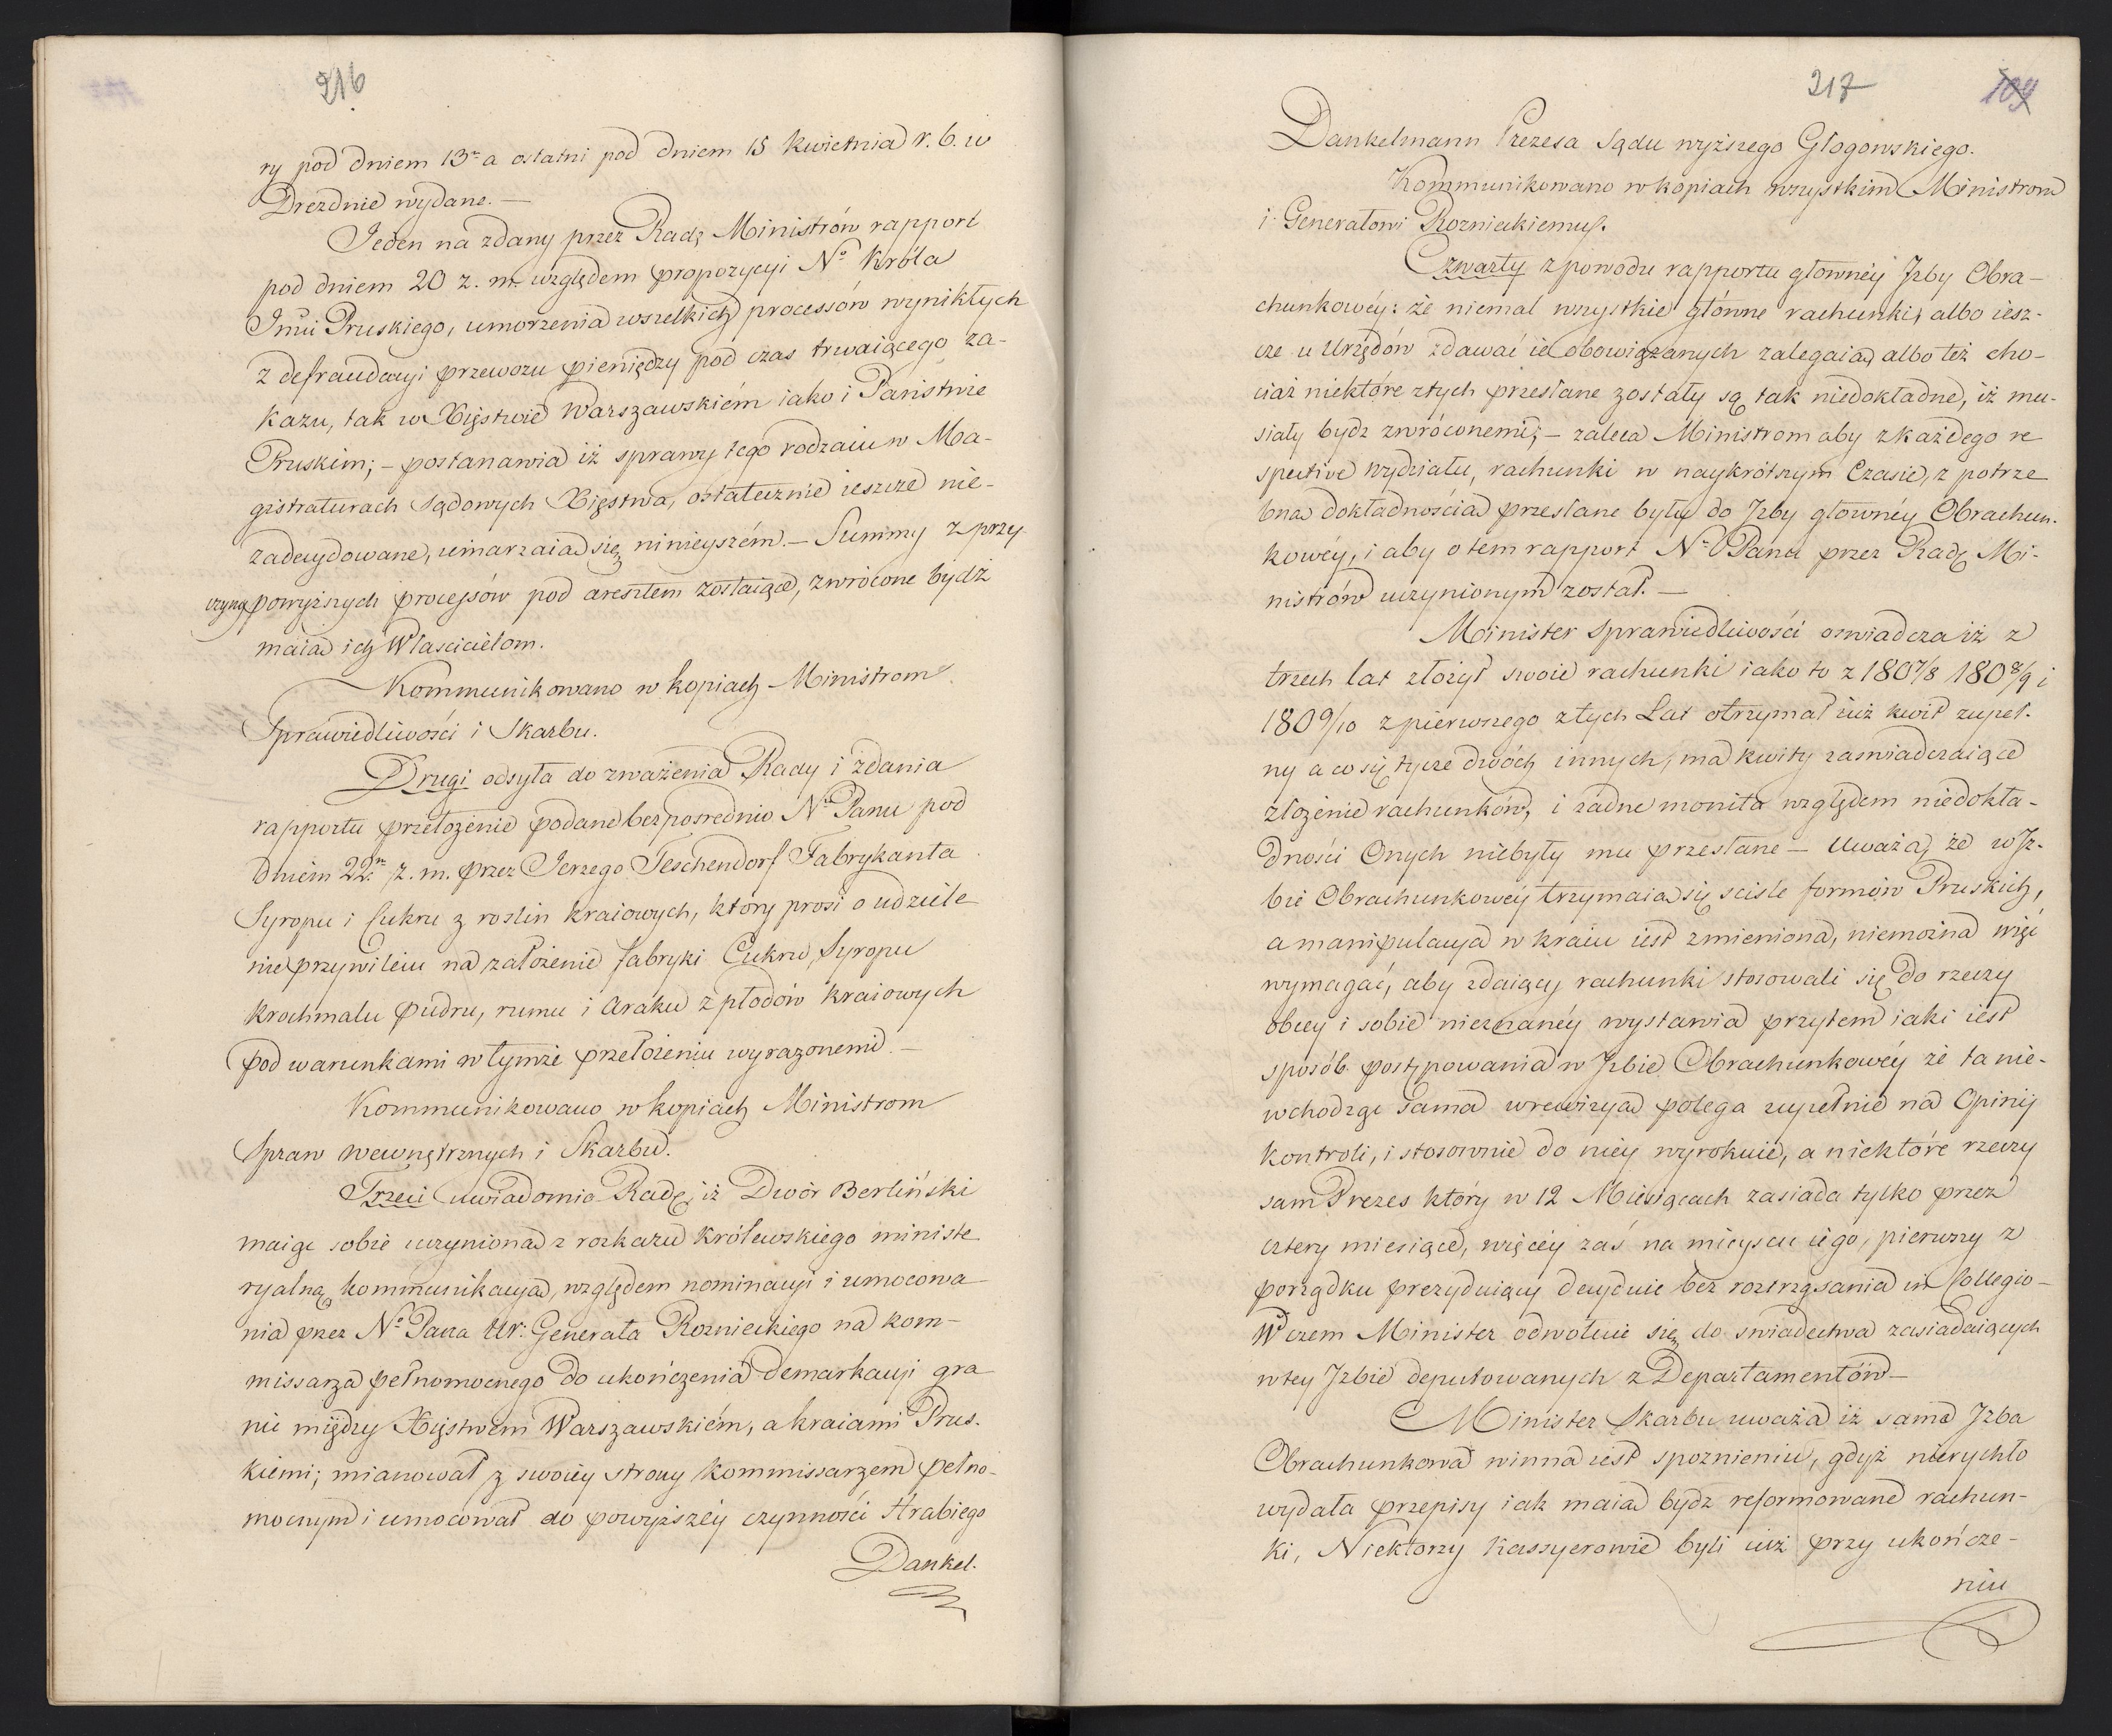 216
ry pod dniem 13º a ostatni pod dniem 15 kwietnia r. b. w
Dreznie wydane. —
Jeden na zdany przez Radę Ministrów rapport
pod dniem 20 z. m. względem propozycyi Nº Króla
Jmći Pruskiego, umorzenia wszelkich processów wynikłych
z defraudacyi przewozu pieniędzy pod czas trwaiącego za-
kazu, tak w Xięstwie Warszawskiém iako i Państwie
Pruskim; – postanawia iż sprawy tego rodzaiu w Ma-
gistraturach sądowych Xięstwa, ostatecznie ieszcze nie-
zadecydowane, umarzaią się ninieyszém. – Summy z przy-
czyny powyższych processów pod aresztem zostaiące, zwrócone bydź
maią ich Własciciélom.
Kommunikowano w kopiach Ministrom
Sprawiedliwości i Skarbu.
Drugi odsyła do zważenia Rady i zdania
rapportu przełożenie podane bezposrednio Nº Panu pod
dniem 22º z. m. przez Jerzego Teschendorf Fabrykanta
Syropu i Cukru z roslin kraiowych, który prosi o udziele
nie przywileiu na założenie fabryki Cukru, Syropu
krochmalu pudru, rumu i araku z płodów kraiowych
pod warunkami w tymże przełożeniu wyrażonemi. —
Kommunikowano w kopiach Ministrom
Spraw wewnętrznych i Skarbu.
Trzeci uwiadomia Radę, iż Dwór Berliński
maiąc sobie uczynioną z rozkazu Królewskiego ministe
ryalną kommunikacyą, względem nominacyi i umocowa
nia przez Nº Pana Ur: Generała Roznieckiego na kom-
missarza pełnomocnego do ukończenia demarkacyi gra
nic między Xięstwem Warszawskiém, a kraiami Prus-
kiemi; mianował z swoiey strony Kommissarzem pełno-
mocnym i umocował do powyższéy czynności Hrabiego
Dankel.
217
109
Dankelmann Prezesa Sądu wyższego Głogowskiego.
Kommunikowano w kopiach wszystkim Ministrom
i Generałowi Roznieckiemu.
Czwarty z powodu rapportu głownéy Jzby Obra-
chunkowéy: że niemal wszystkie główne rachunki, albo iesz-
cze u Urzędów zdawać ie obowiązanych zalegaią, albo też cho-
ciaż niektóre z tych przesłane zostały są tak niedokładne, iż mu-
siały bydz zwróconemi; – zaleca Ministrom aby z każdego re
spective wydziału, rachunki w naykrótszym Czasie, z potrze
bną dokładnością przesłane były do Jzby głownéy Obrachun-
kowéy, i aby o tem rapport Nº Pana przez Radę Mi-
nistrów uczynionym został. —
Minister Sprawiedliwości oswiadcza iż z
trzech lat złożył swoie rachunki iako to z 1807/8 1808/9 i
1809/10 z pierwszego z tych Lat otrzymał iuż kwit zupeł-
ny a co się tycze dwóch innych, ma kwity zaswiadczaiące
złożenie rachunków, i żadne monita względem niedokła-
dności Onych niebyły mu przesłane – Uważa, że w Jz-
bie Obrachunkowéy trzymaią się sciśle formów Pruskich,
a manipulacya w kraiu iest zmieniona, niemożna więc
wymagać, aby zdaiący rachunki stosowali się do rzeczy
obcey i sobie nieznanéy wystawia przytem iaki iest
sposób postępowania w Jzbie Obrachunkowéy że ta nie-
wchodząc sama w rewizyą polega zupełnie na Opinij
kontroli, i stosownie do niey wyrokuie, a niektóre rzeczy
sam Prezes który w 12 Miesiącach zasiada tylko przez
cztery miesiące, więcéy zaś na mieyscu iego, pierwszy z
porządku prezyduiący decyduie bez roztrząsania in Collegio –
W czem Minister odwołuie się do swiadectwa zasiadaiących
w tey Jzbie deputowanych z Departamentów —
Minister Skarbu uważa iż sama Jzba
Obrachunkowa winna iest spoznieniu, gdyż nierychło
wydała przepisy iak maią bydz reformowane rachun-
ki, Niektorzy Kassyerowie byli iuż przy ukończe-
niu